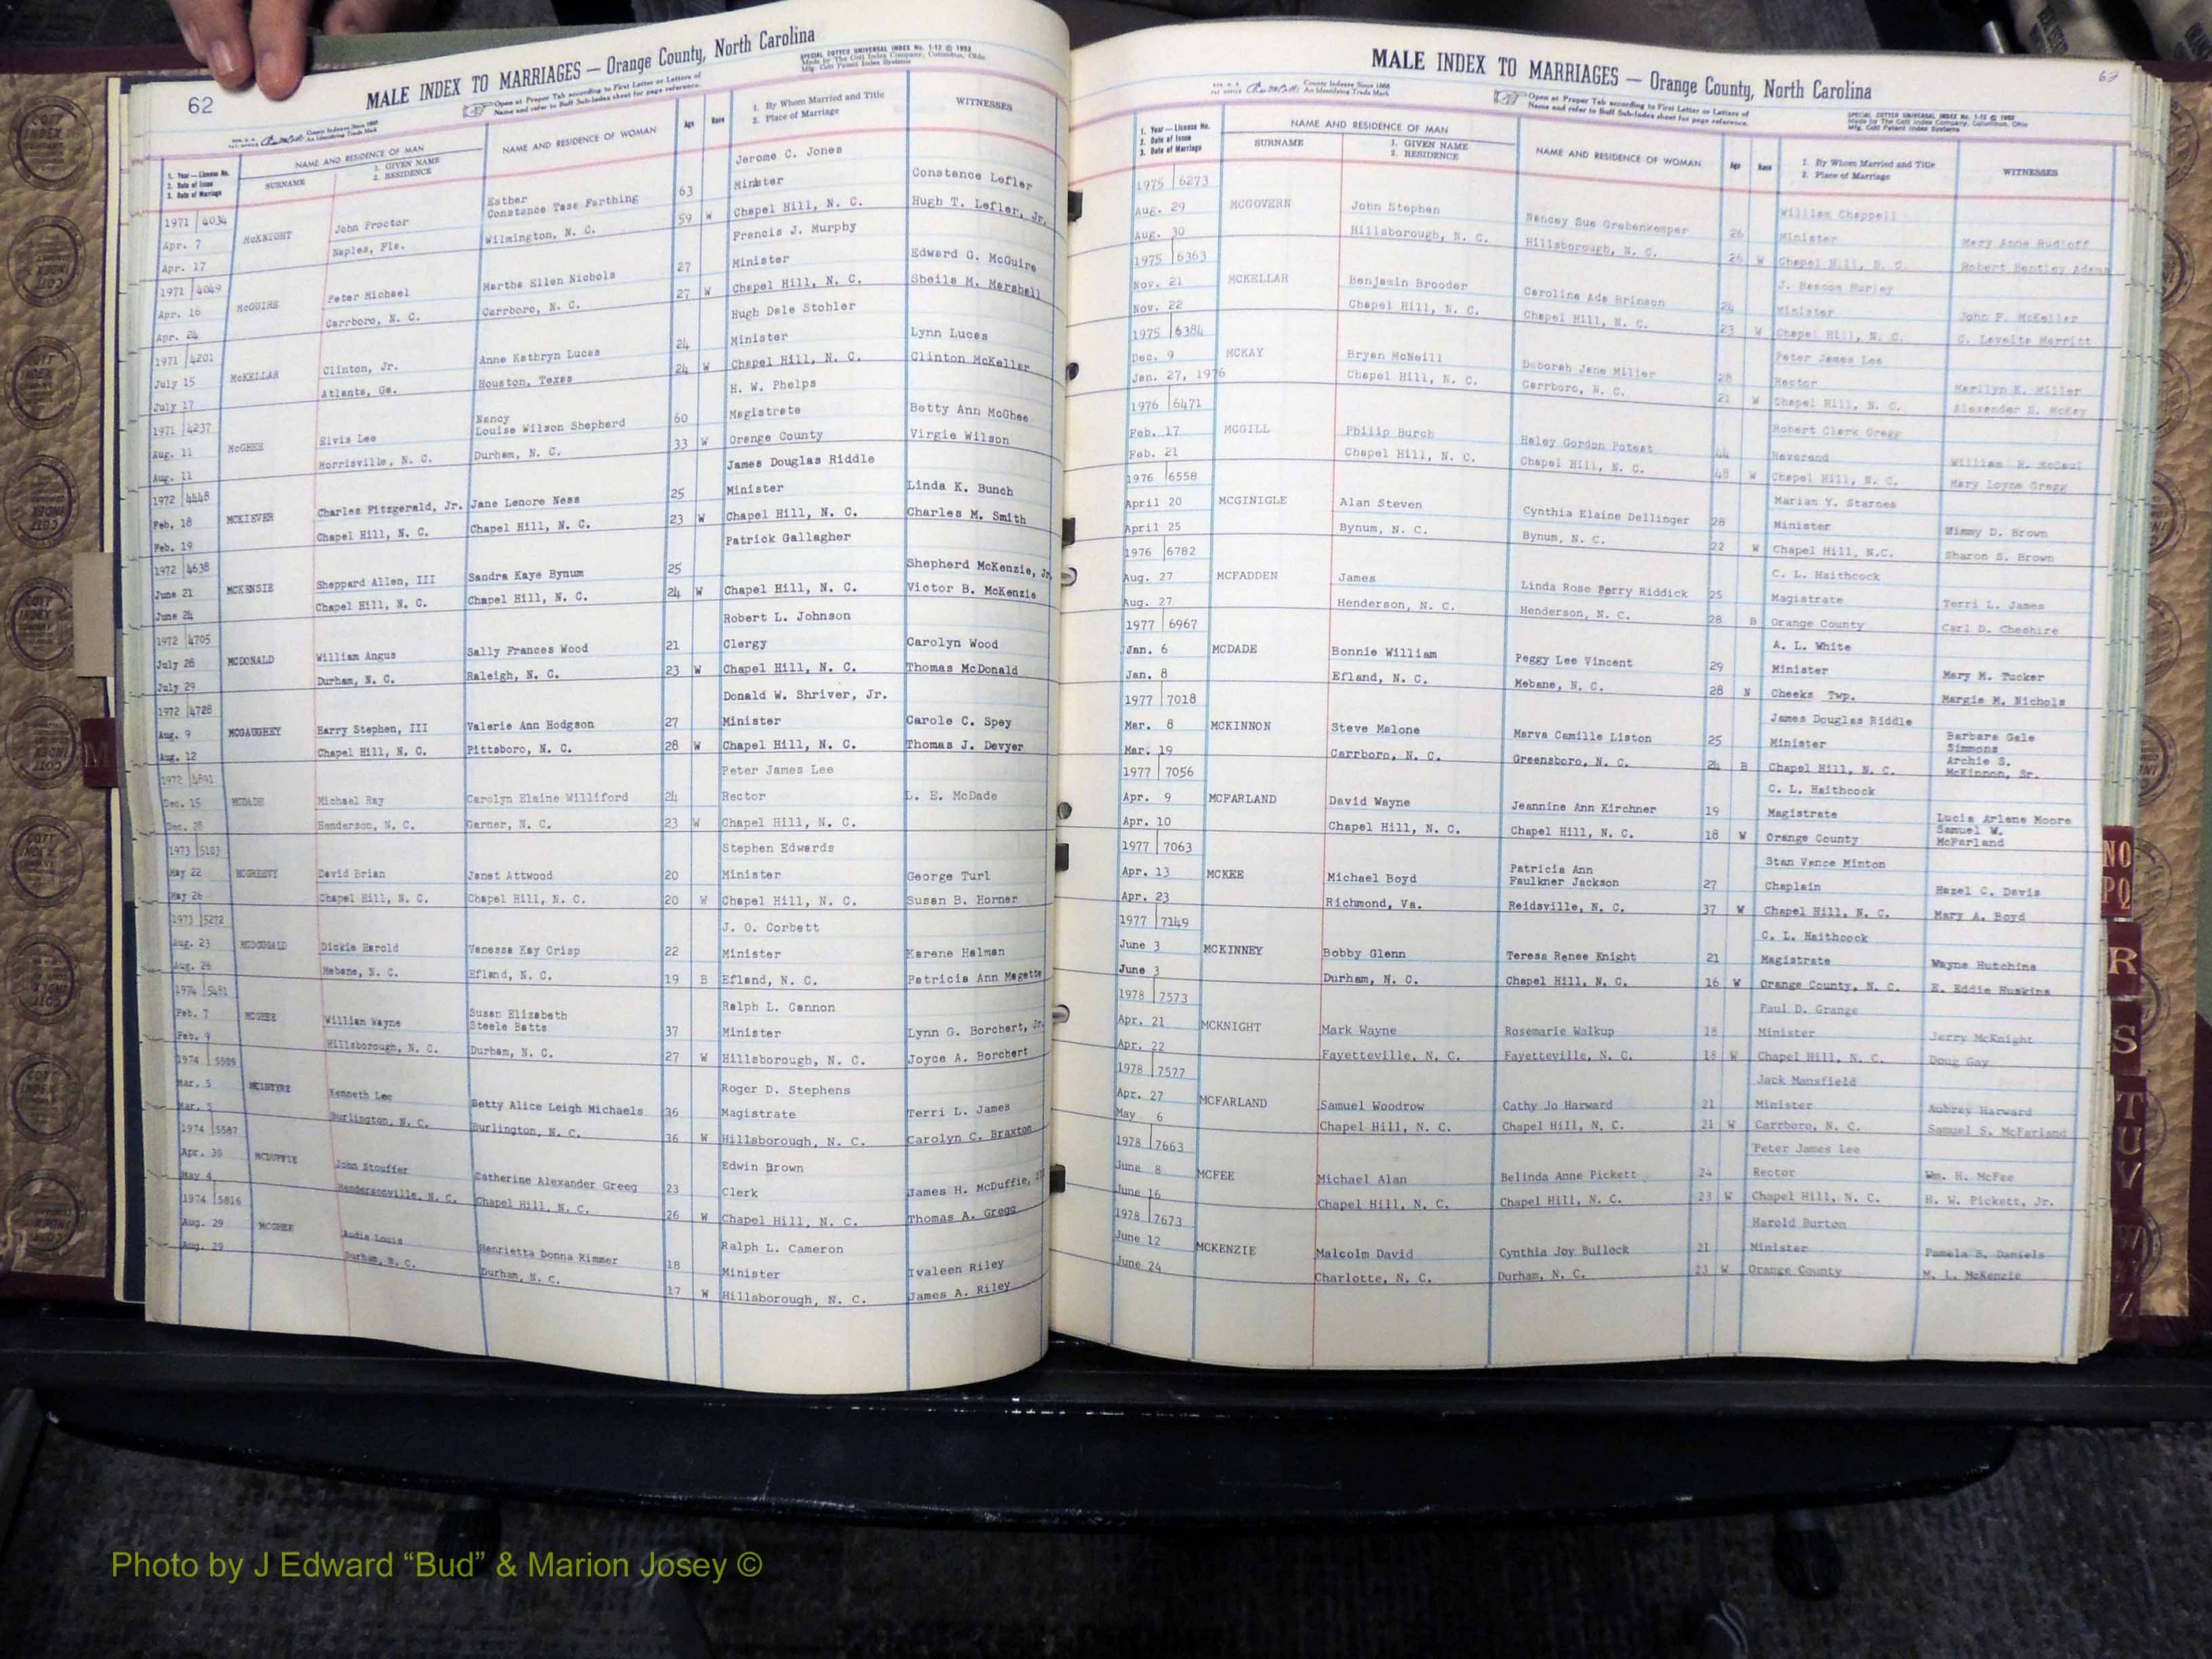 62
MALE INDEX TO MARRIAGES — Orange County, North Carolina
SPECIAL COTTCO UNIVERSAL INDEX No. 1-12 © 1952
Made by The Cott Index Company, Columbus, Ohio
Mfg. Cott Patent Index Systems
Open at Proper Tab according to First Letter or Letters of
Name and refer to Buff Sub-Index sheet for page reference.
County Indexes Since 1888
An Identifying Trade Mark
1. Year — License No.
2. Date of Issue
3. Date of Marriage
NAME AND RESIDENCE OF MAN
SURNAME
1. GIVEN NAME
2. RESIDENCE
NAME AND RESIDENCE OF WOMAN
Age
Race
1. By Whom Married and Title
2. Place of Marriage
WITNESSES
1971 4034 Apr. 7 Apr. 17
McKNIGHT
John Proctor
Naples, Fla.
Esther
Constance Tase Farthing
Wilmington, N. C.
63
59 W
Jerome C. Jones
Minister
Chapel Hill, N. C.
Constance Lefler
Hugh T. Lefler, Jr.
1971 4049 Apr. 16 Apr. 24
McGUIRE
Peter Michael
Carrboro, N. C.
Martha Ellen Nichols
Carrboro, N. C.
27
27 W
Francis J. Murphy
Minister
Chapel Hill, N. C.
Edward G. McGuire
Sheila M. Marshall
1971 4201 July 15 July 17
McKELLAR
Clinton, Jr.
Atlanta, Ga.
Anne Kathryn Lucas
Houston, Texas
24
24 W
Hugh Dale Stohler
Minister
Chapel Hill, N. C.
Lynn Lucas
Clinton McKellar
1971 4237 Aug. 11 Aug. 11
McGHEE
Elvis Lee
Morrisville, N. C.
Nancy
Louise Wilson Shepherd
Durham, N. C.
60
33 W
H. W. Phelps
Magistrate
Orange County
Betty Ann McGhee
Virgie Wilson
1972 4448 Feb. 18 Feb. 19
MCKIEVER
Charles Fitzgerald, Jr.
Chapel Hill, N. C.
Jane Lenore Ness
Chapel Hill, N. C.
25
23 W
James Douglas Riddle
Minister
Chapel Hill, N. C.
Linda K. Bunch
Charles M. Smith
1972 4638 June 21 June 24
MCKENSIE
Sheppard Allen, III
Chapel Hill, N. C.
Sandra Kaye Bynum
Chapel Hill, N. C.
25
24 W
Patrick Gallagher
Chapel Hill, N. C.
Shepherd McKenzie, Jr.
Victor B. McKenzie
1972 4705 July 28 July 29
MCDONALD
William Angus
Durham, N. C.
Sally Frances Wood
Raleigh, N. C.
21
23 W
Robert L. Johnson
Clergy
Chapel Hill, N. C.
Carolyn Wood
Thomas McDonald
1972 4728 Aug. 9 Aug. 12
MCGAUGHEY
Harry Stephen, III
Chapel Hill, N. C.
Valerie Ann Hodgson
Pittsboro, N. C.
27
28 W
Donald W. Shriver, Jr.
Minister
Chapel Hill, N. C.
Carole C. Spey
Thomas J. Devyer
1972 4891 Dec. 15 Dec. 28
MCDADE
Michael Ray
Henderson, N. C.
Carolyn Elaine Williford
Garner, N. C.
24
23 W
Peter James Lee
Rector
Chapel Hill, N. C.
L. E. McDade
1973 5103 May 22 May 26
MCGREEVY
David Brian
Chapel Hill, N. C.
Janet Attwood
Chapel Hill, N. C.
20
20 W
Stephen Edwards
Minister
Chapel Hill, N. C.
George Turl
Susan B. Horner
1973 5272 Aug. 23 Aug. 26
MCDOUGALD
Dickie Harold
Mebane, N. C.
Vanessa Kay Crisp
Efland, N. C.
22
19 B
J. O. Corbett
Minister
Efland, N. C.
Karene Halman
Patricia Ann Magette
1974 5481 Feb. 7 Feb. 9
MCGHEE
William Wayne
Hillsborough, N. C.
Susan Elizabeth
Steele Batts
Durham, N. C.
37
27 W
Ralph L. Cannon
Minister
Hillsborough, N. C.
Lynn G. Borchert, Jr.
Joyce A. Borchert
1974 5509 Mar. 5 Mar. 5
MCINTYRE
Kenneth Lee
Burlington, N. C.
Betty Alice Leigh Michaels
Burlington, N. C.
36
36 W
Roger D. Stephens
Magistrate
Hillsborough, N. C.
Terri L. James
Carolyn C. Braxton
1974 5587 Apr. 30 May 4
MCDUFFIE
John Stouffer
Hendersonville, N. C.
Catherine Alexander Greeg
Chapel Hill, N. C.
23
26 W
Edwin Brown
Clerk
Chapel Hill, N. C.
James H. McDuffie, III
Thomas A. Gregg
1974 5816 Aug. 29 Aug. 29
MCGHEE
Audie Louis
Durham, N. C.
Henrietta Donna Rimmer
Durham, N. C.
18
17 W
Ralph L. Cameron
Minister
Hillsborough, N. C.
Ivaleen Riley
James A. Riley
63
MALE INDEX TO MARRIAGES — Orange County, North Carolina
County Indexes Since 1888
An Identifying Trade Mark
Open at Proper Tab according to First Letter or Letters of
Name and refer to Buff Sub-Index sheet for page reference.
SPECIAL COTTCO UNIVERSAL INDEX No. 1-12 © 1952
Made by The Cott Index Company, Columbus, Ohio
Mfg. Cott Patent Index Systems
1. Year — License No.
2. Date of Issue
3. Date of Marriage
NAME AND RESIDENCE OF MAN
SURNAME
1. GIVEN NAME
2. RESIDENCE
NAME AND RESIDENCE OF WOMAN
Age
Race
1. By Whom Married and Title
2. Place of Marriage
WITNESSES
1975 6273 Aug. 29 Aug. 30
MCGOVERN
John Stephen
Hillsborough, N. C.
Nancey Sue Grebenkemper
Hillsborough, N. C.
26
26 W
William Chappell
Minister
Chapel Hill, N. C.
Mary Anne Rudloff
Robert Bentley Adams
1975 6363 Nov. 21 Nov. 22
MCKELLAR
Benjamin Brooder
Chapel Hill, N. C.
Caroline Ada Brinson
Chapel Hill, N. C.
24
23 W
J. Bascom Hurley
Minister
Chapel Hill, N. C.
John F. McKellar
C. Levelte Merritt
1975 6384 Dec. 9 Jan. 27, 1976
MCKAY
Bryan McNeill
Chapel Hill, N. C.
Deborah Jane Miller
Carrboro, N. C.
28
21 W
Peter James Lee
Rector
Chapel Hill, N. C.
Marilyn K. Miller
Alexander B. McKay
1976 6471 Feb. 17 Feb. 21
MCGILL
Philip Burch
Chapel Hill, N. C.
Haley Gordon Poteat
Chapel Hill, N. C.
44
48 W
Robert Clark Gregg
Reverend
Chapel Hill, N. C.
William H. McCaul
Mary Loyne Gregg
1976 6558 April 20 April 25
MCGINIGLE
Alan Steven
Bynum, N. C.
Cynthia Elaine Dellinger
Bynum, N. C.
28
22 W
Marian Y. Starnes
Minister
Chapel Hill, N.C.
Wimmy D. Brown
Sharon S. Brown
1976 6782 Aug. 27 Aug. 27
MCFADDEN
James
Henderson, N. C.
Linda Rose Perry Riddick
Henderson, N. C.
25
28 B
C. L. Haithcock
Magistrate
Orange County
Terri L. James
Carl D. Cheshire
1977 6967 Jan. 6 Jan. 8
MCDADE
Bonnie William
Efland, N. C.
Peggy Lee Vincent
Mebane, N. C.
29
28 N
A. L. White
Minister
Cheeks Twp.
Mary M. Tucker
Margie M. Nichols
1977 7018 Mar. 8 Mar. 19
MCKINNON
Steve Malone
Carrboro, N. C.
Marva Camille Liston
Greensboro, N. C.
25
24 B
James Douglas Riddle
Minister
Chapel Hill, N. C.
Barbara Gale
Simmons
Archie S.
McKinnon, Sr.
1977 7056 Apr. 9 Apr. 10
MCFARLAND
David Wayne
Chapel Hill, N. C.
Jeannine Ann Kirchner
Chapel Hill, N. C.
19
18 W
C. L. Haithcock
Magistrate
Orange County
Lucia Arlene Moore
Samuel W.
McFarland
1977 7063 Apr. 13 Apr. 23
MCKEE
Michael Boyd
Richmond, Va.
Patricia Ann
Faulkner Jackson
Reidsville, N. C.
27
37 W
Stan Vance Minton
Chaplain
Chapel Hill, N. C.
Hazel C. Davis
Mary A. Boyd
1977 7149 June 3 June 3
MCKINNEY
Bobby Glenn
Durham, N. C.
Teresa Renee Knight
Chapel Hill, N. C.
21
16 W
C. L. Haithcock
Magistrate
Orange County, N. C.
Wayne Hutchins
E. Eddie Huskins
1978 7573 Apr. 21 Apr. 22
MCKNIGHT
Mark Wayne
Fayetteville, N. C.
Rosemarie Walkup
Fayetteville, N. C.
18
18 W
Paul D. Grange
Minister
Chapel Hill, N. C.
Jerry McKnight
Doug Gay
1978 7577 Apr. 27 May 6
MCFARLAND
Samuel Woodrow
Chapel Hill, N. C.
Cathy Jo Harward
Chapel Hill, N. C.
21
21 W
Jack Mansfield
Minister
Carrboro, N. C.
Aubrey Harward
Samuel S. McFarland
1978 7663 June 8 June 16
MCFEE
Michael Alan
Chapel Hill, N. C.
Belinda Anne Pickett
Chapel Hill, N. C.
24
23 W
Peter James Lee
Rector
Chapel Hill, N. C.
Wm. H. McFee
H. W. Pickett, Jr.
1978 7673 June 12 June 24
MCKENZIE
Malcolm David
Charlotte, N. C.
Cynthia Joy Bullock
Durham, N. C.
21
23 W
Harold Burton
Minister
Orange County
Pamela B. Daniels
M. L. McKenzie
M
NO
PQ
R
S
T
U
V
W
Z
Photo by J Edward “Bud” & Marion Josey ©